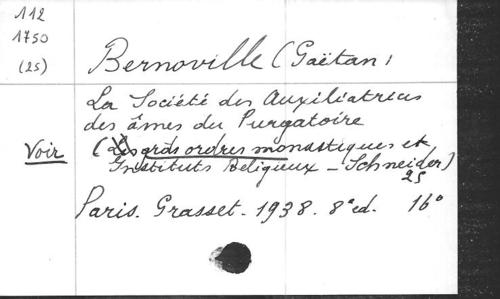 112
1750
(25)
Bernoville (Gaëtan)
La Société des Auxiliatrices
des âmes du Purgatoire
Voir
(Les grds ordres monastiques et
Instituts Religieux - Schneider)
25
Paris. Grasset. 1938. 8e ed. 16°